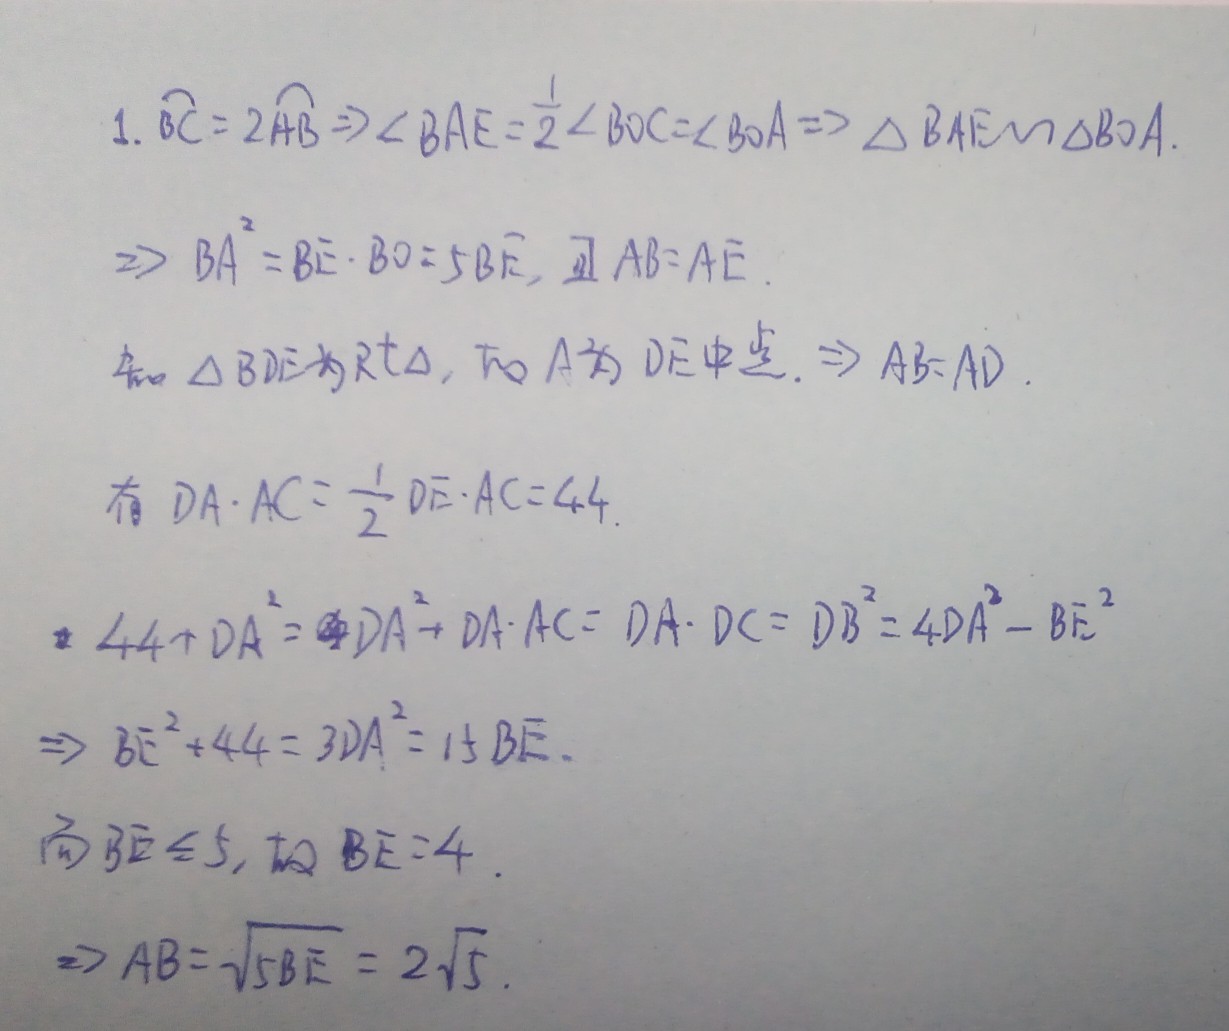 1. ⌒BC = 2⌒AB ⇒ ∠BAE = 1/2 ∠BOC = ∠BOA ⇒ △BAE ∽ △BOA.
⇒ BA² = BE·BO = 5BE, 且 AB = AE.
知 △BDE为Rt△, 故 A为 DE中点. ⇒ AB = AD.
有 DA·AC = 1/2 DE·AC = 44.
44 + DA² = DA² + DA·AC = DA·DC = DB² = 4DA² - BE²
⇒ BE² + 44 = 3DA² = 15BE.
而 BE ≤ 5, 故 BE = 4.
⇒ AB = √(5BE) = 2√5.